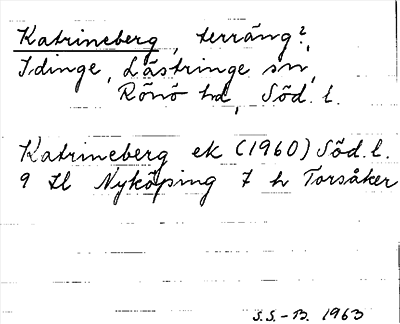 Katrineberg, terräng?,
Idinge, Lästringe sn,
Rönö hd, Söd. l.
Katrineberg ek (1960) Söd. l.
9 H1 Nyköping 7 h Torsåker
S.S.-B. 1963